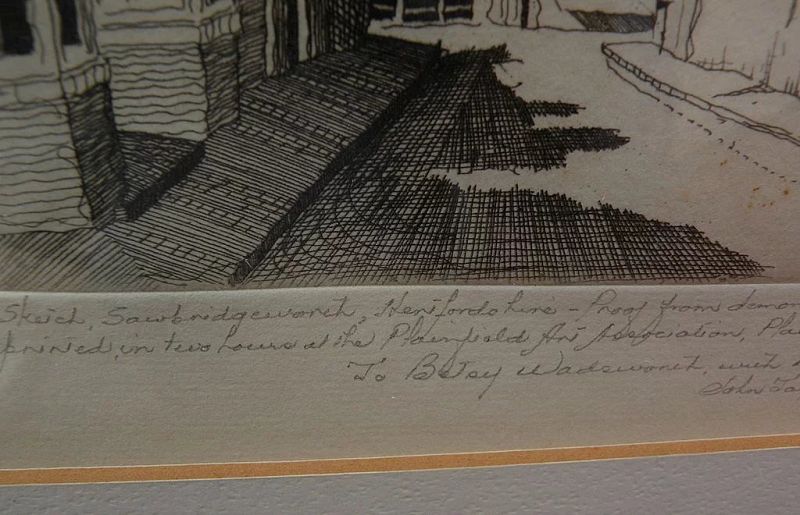 Sketch, Sawbridgeworth, Hertfordshire - Proof from demon
printed, in two hours at the Plainfield Art Association, Pla
To Betsy Wadsworth, with
John Ta